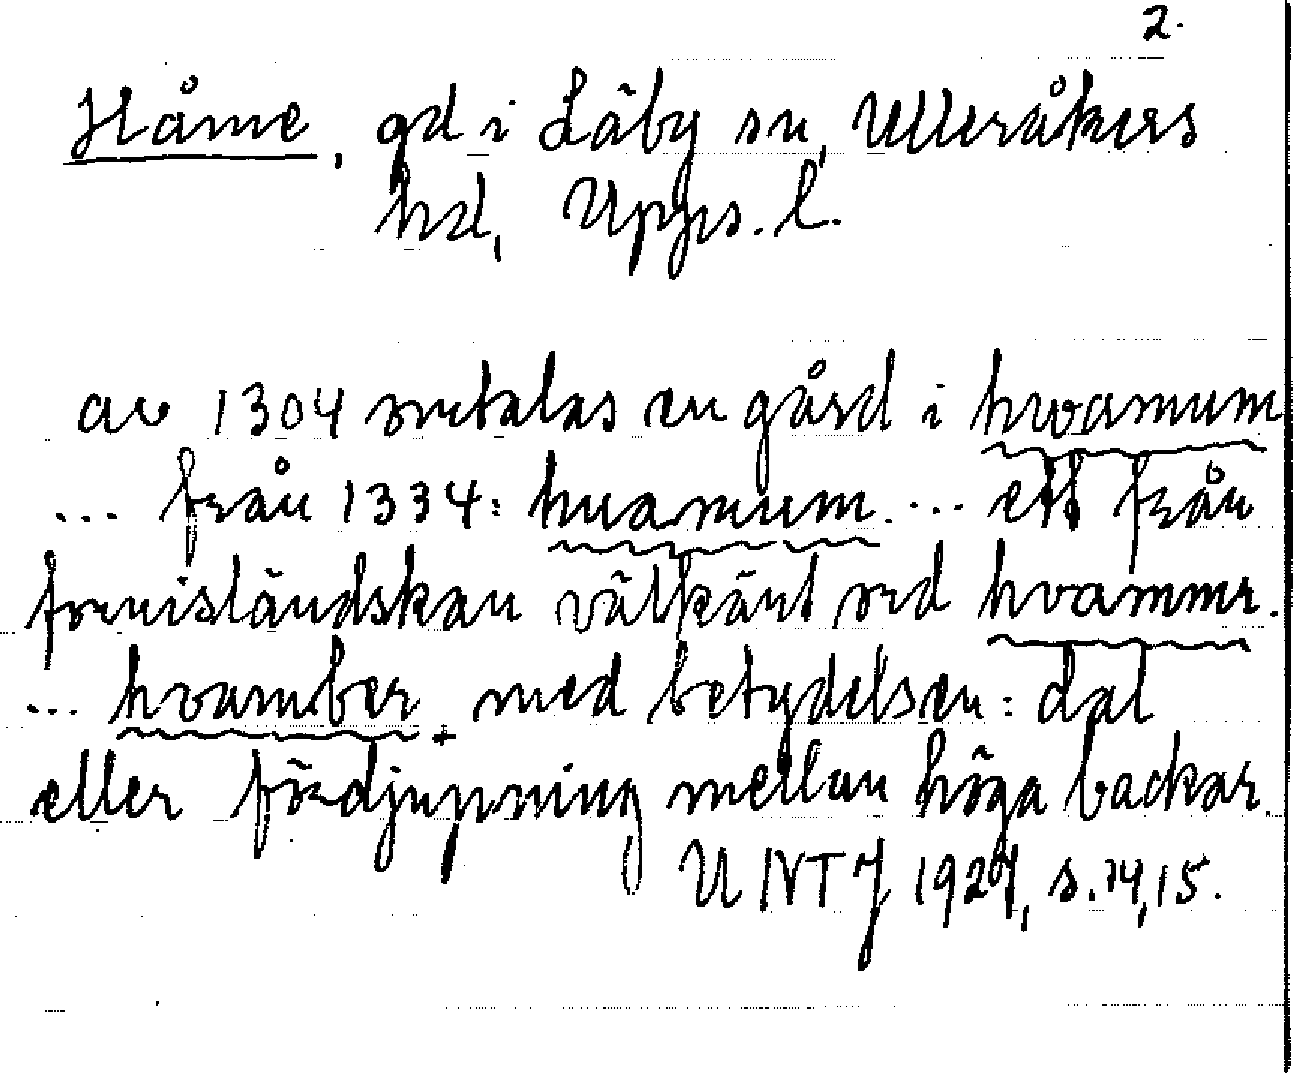 2.
Håme, gd i Läby sn, Ulleråkers
hd, Upps. l.
av 1304 omtalas en gård i hvamum
... från 1334: huamum. ... ett från
fornisländskan välkänt ord hvammr.
... hvamber med betydelsen: dal
eller fördjupning mellan höga backar.
UNTJ 1927, s. 14,15.